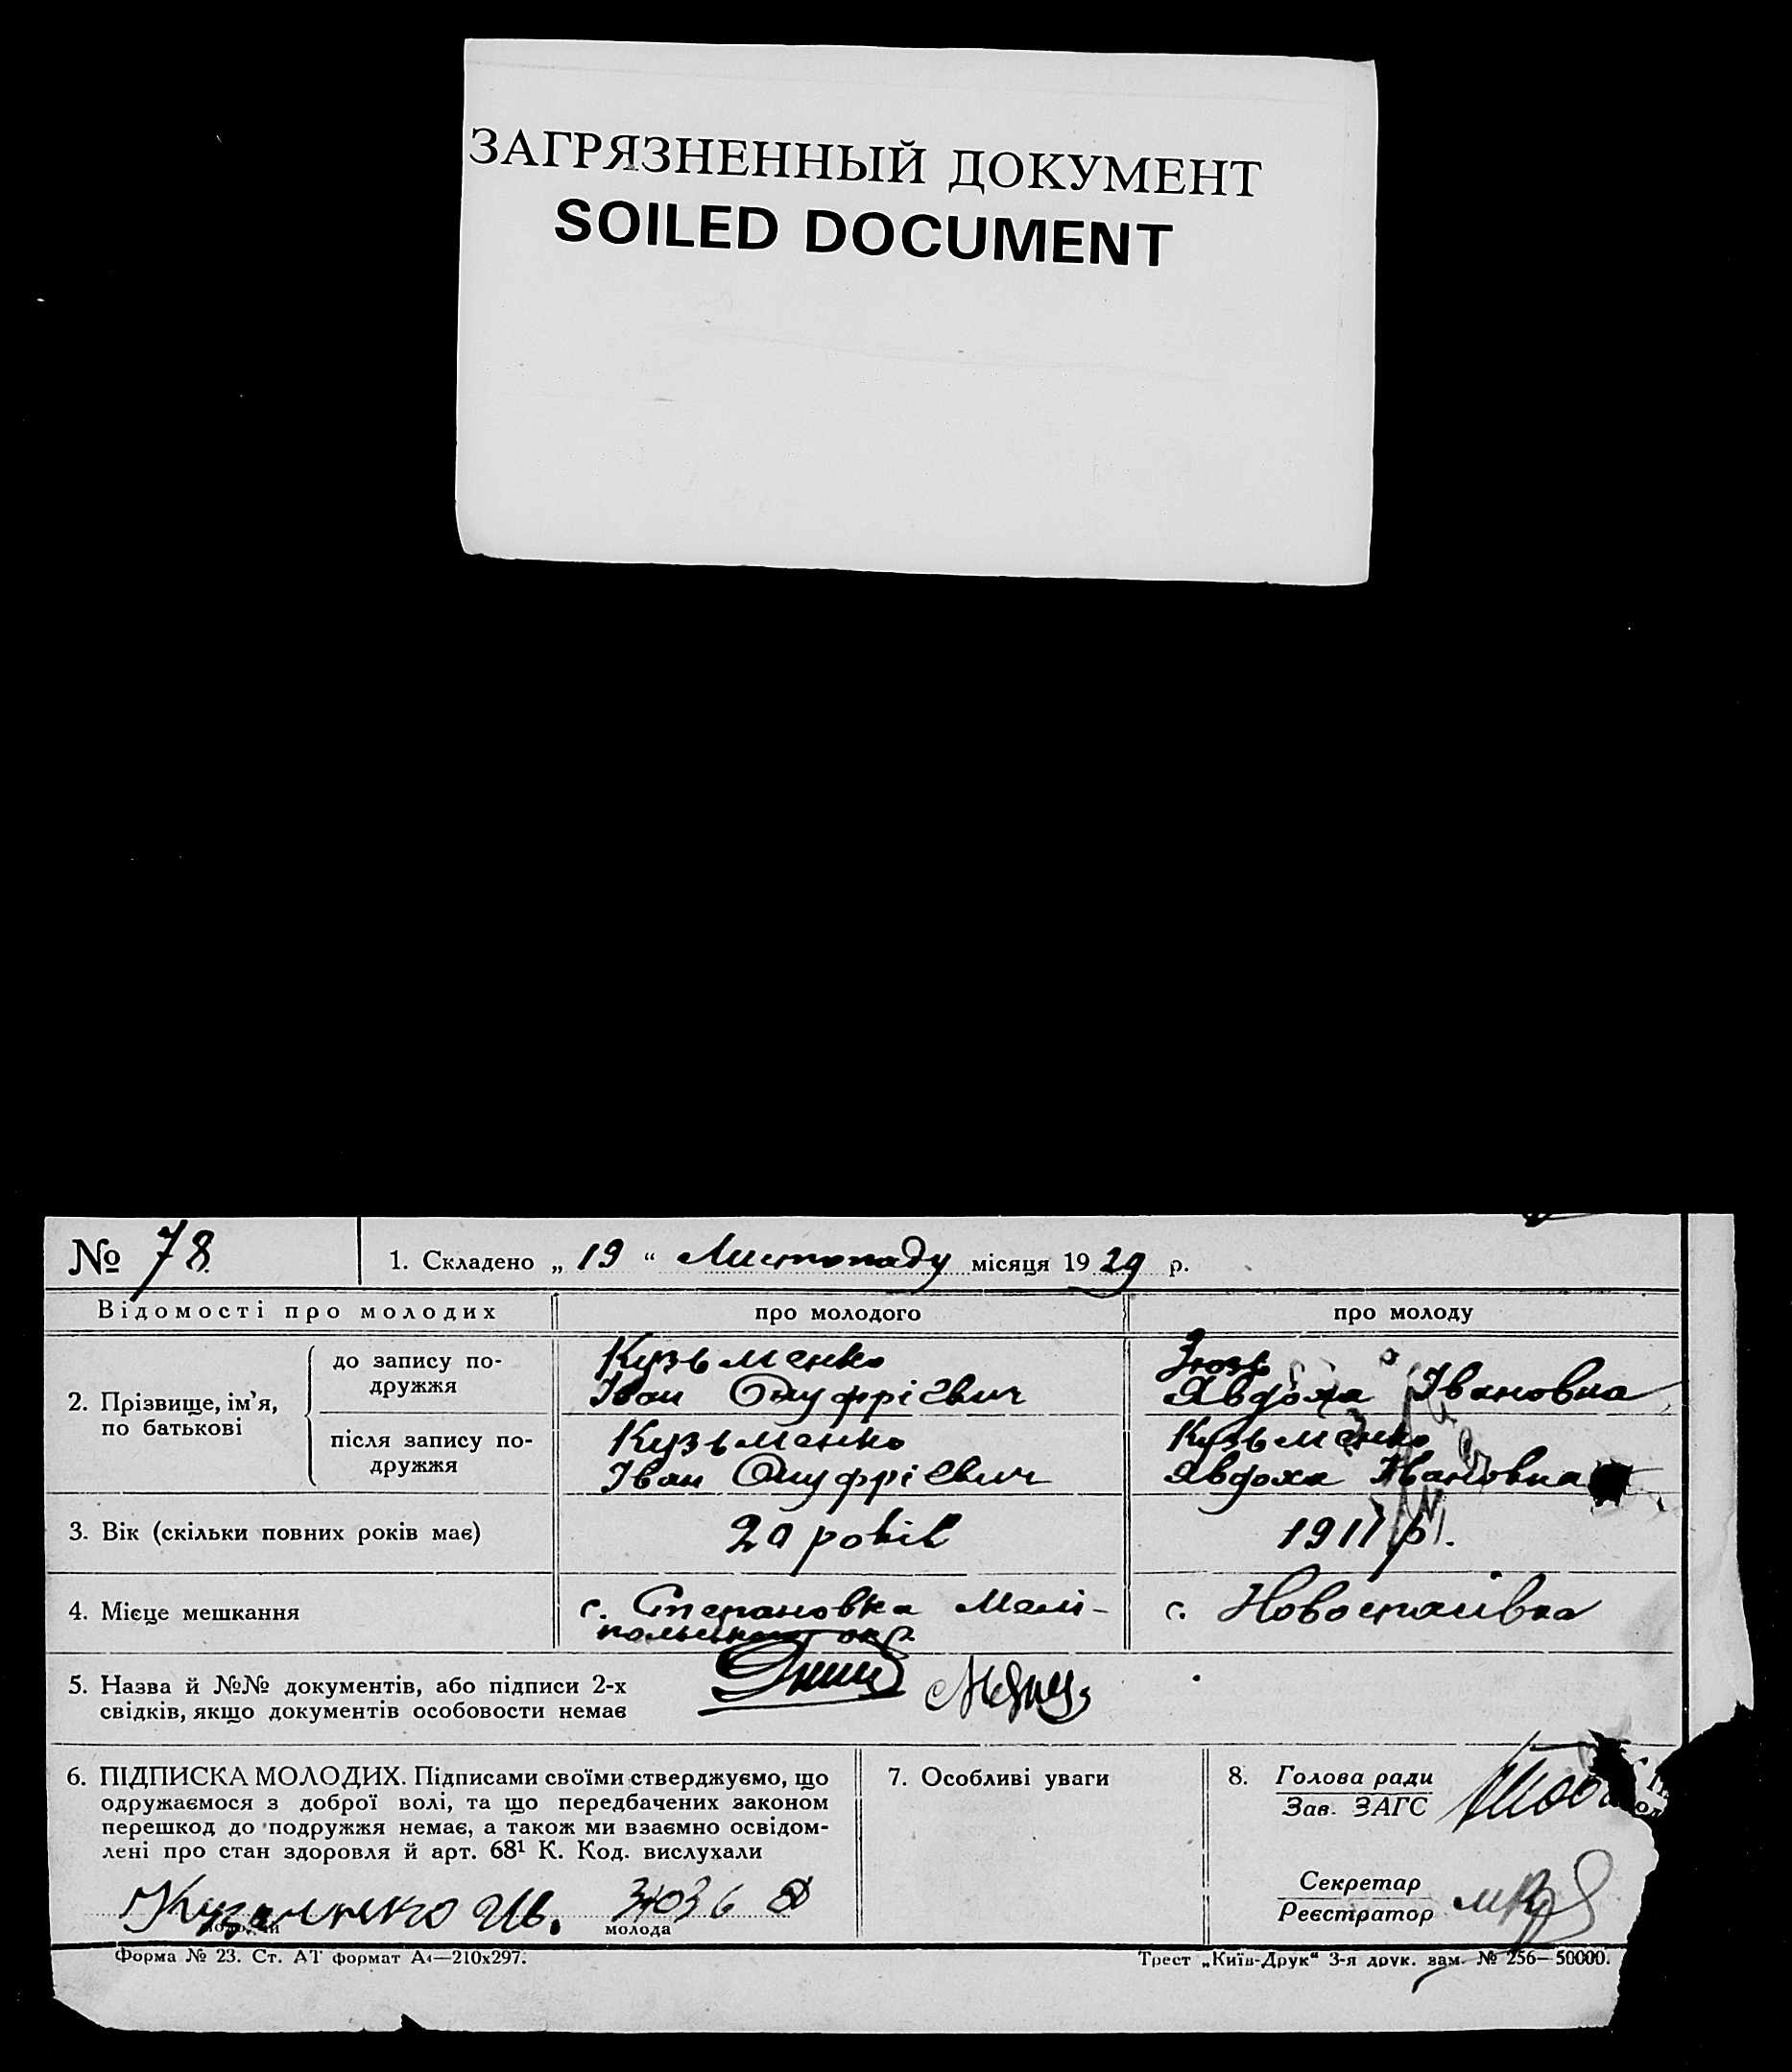 ЗАГРЯЗНЕННЫЙ ДОКУМЕНТ
SOILED DOCUMENT
№ 78
1. Складено „ 19 “ Листопаду місяця 1929 р.
Відомості про молодих
про молодого
про молоду
2. Прізвище, ім’я,
по батькові
до запису по-
дружжя
Кузьменко
Іван Онуфрієвич
Зюзь
Явдоха Івановна
після запису по-
дружжя
Кузьменко
Іван Онуфрієвич
Кузьменко
Явдоха Івановна
3. Вік (скільки повних років має)
20 років
1911 р.
4. Місце мешкання
с. Степановка Мелі-
польського окр.
с. Новоспаівка
5. Назва й №№ документів, або підписи 2-х
свідків, якщо документів особовости немає
6. ПІДПИСКА МОЛОДИХ. Підписами своїми стверджуємо, що
одружаємося з доброї волі, та що передбачених законом
перешкод до подружжя немає, а також ми взаємно освідом-
лені про стан здоровля й арт. 68¹ К. Код. вислухали
Кузменко Ив.
молодий
молода
7. Особливі уваги
8. Голова ради
Зав. ЗАГС
Секретар
Реєстратор
Форма № 23. Ст. АТ формат А4—210х297.
Трест „Київ-Друк“ 3-я друк. зам. № 256—50000.